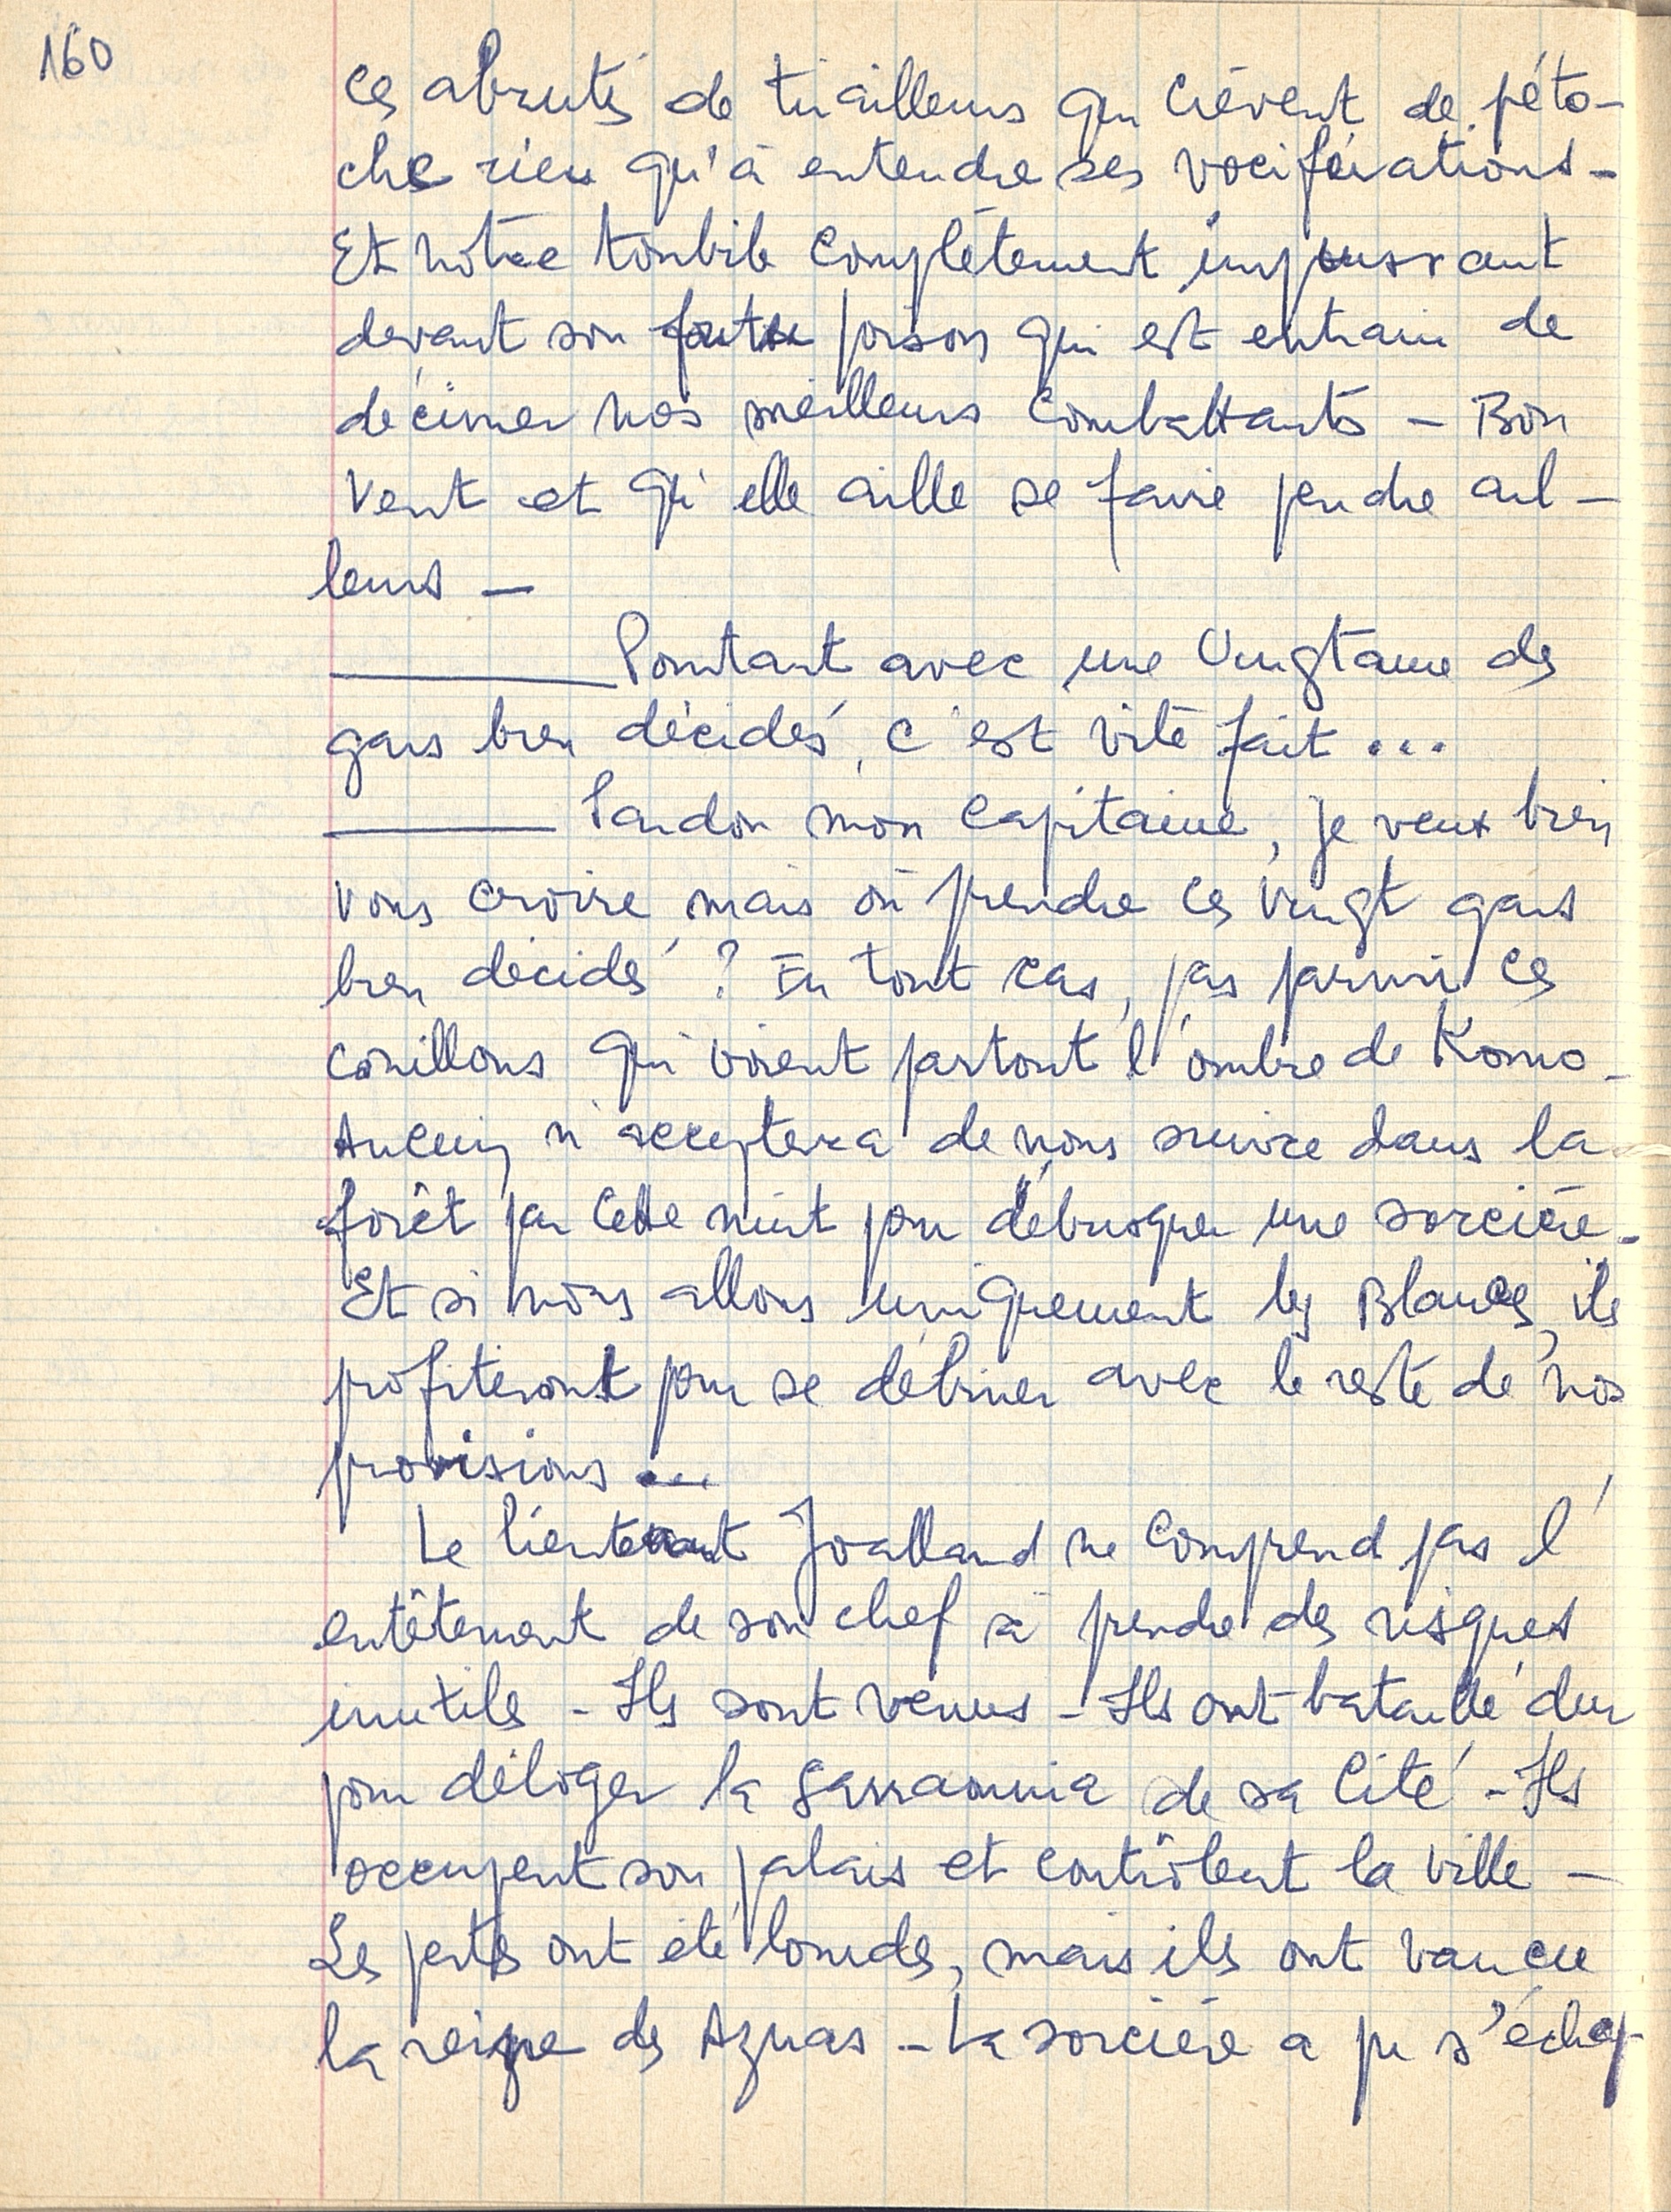 160
ces abrutis de tirailleurs qui crèvent de péto-
che rien qu'à entendre ses vociférations -
Et nôtre toubib complètement impuissant
devant son foutu poison qui est entrain de
décimer nos meilleurs combattants - Bon
vent et qu'elle aille se faire pendre ail -
leurs -
Pourtant avec une vingtaine de
gars bien décidés, c'est vite fait ...
Pardon mon Capitaine, je veux bien
vous croire, mais où prendre ces vingt gars
bien décidés ? En tout cas, pas parmi ces
couillons qui voient partout l'ombre de Komo -
Aucun n'acceptera de nous suivre dans la
forêt par cette nuit pour débusquer une sorcière -
Et si nous allons uniquement les Blancs, ils
profiteront pour se débiner avec le reste de nos
provisions ...
Le lieutenant Joalland ne comprend pas l'
entêtement de son chef à prendre des risques
inutiles - Ils sont venus - Ils ont bataillé dur
pour déloger la Sarraounia de sa Cité - Ils
occupent son palais et contrôlent la ville -
Les pertes ont été lourdes, mais ils ont vaincu
la reine des Aznas - La sorcière a pu s'échap-